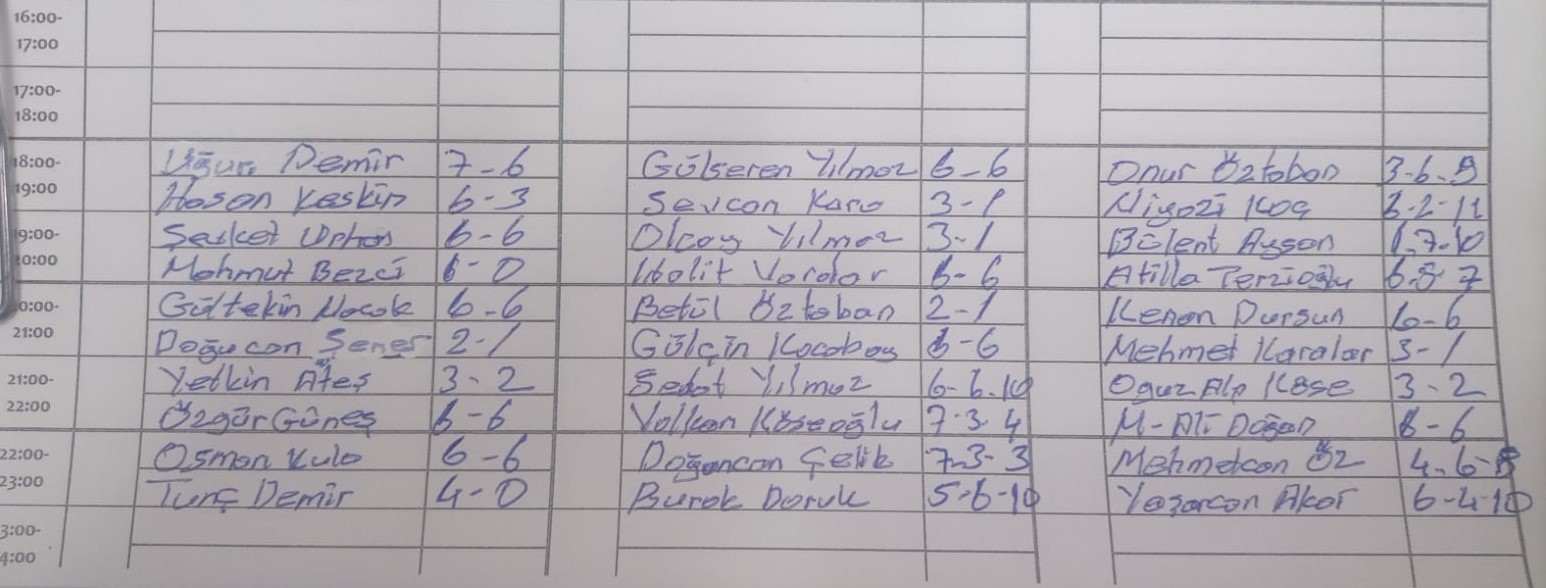 16:00-
17:00
17:00-
18:00
18:00- Uğur Demir 7-6 Gülseren Yılmaz 6-6 Onur Öztoban 3-6-9
19:00 Hasan Keskin 6-3 Sevcan Kara 3-1 Niyazi Koç 6-2-11
19:00- Şevket Orhan 6-6 Olcay Yılmaz 3-1 Bülent Aygan 6-7-10
20:00 Mahmut Bezci 6-0 Halit Vardar 6-6 Atilla Terzioğlu 6-5-7
20:00- Gültekin 6-6 Betül Öztoban 2-1 Kenan Dursun 6-6
21:00 Doğucan Şener 2-1 Gülçin Kocabaş 6-6 Mehmet Karalar 3-1
21:00- Yetkin Ateş 3-2 Sedat Yılmaz 6-6-10 Oğuz Alp Köse 3-2
22:00 Özgür Güneş 6-6 Volkan Köseoğlu 7-3-4 M-Ali Doğan 6-6
22:00- Osman Kula 6-6 Doğancan Çelik 7-3-3 Mehmetcan Öz 4-6-8
23:00 Tunç Demir 4-0 Burak Doruk 5-6-10 Yaşarcan Akar 6-4-10
3:00-
4:00